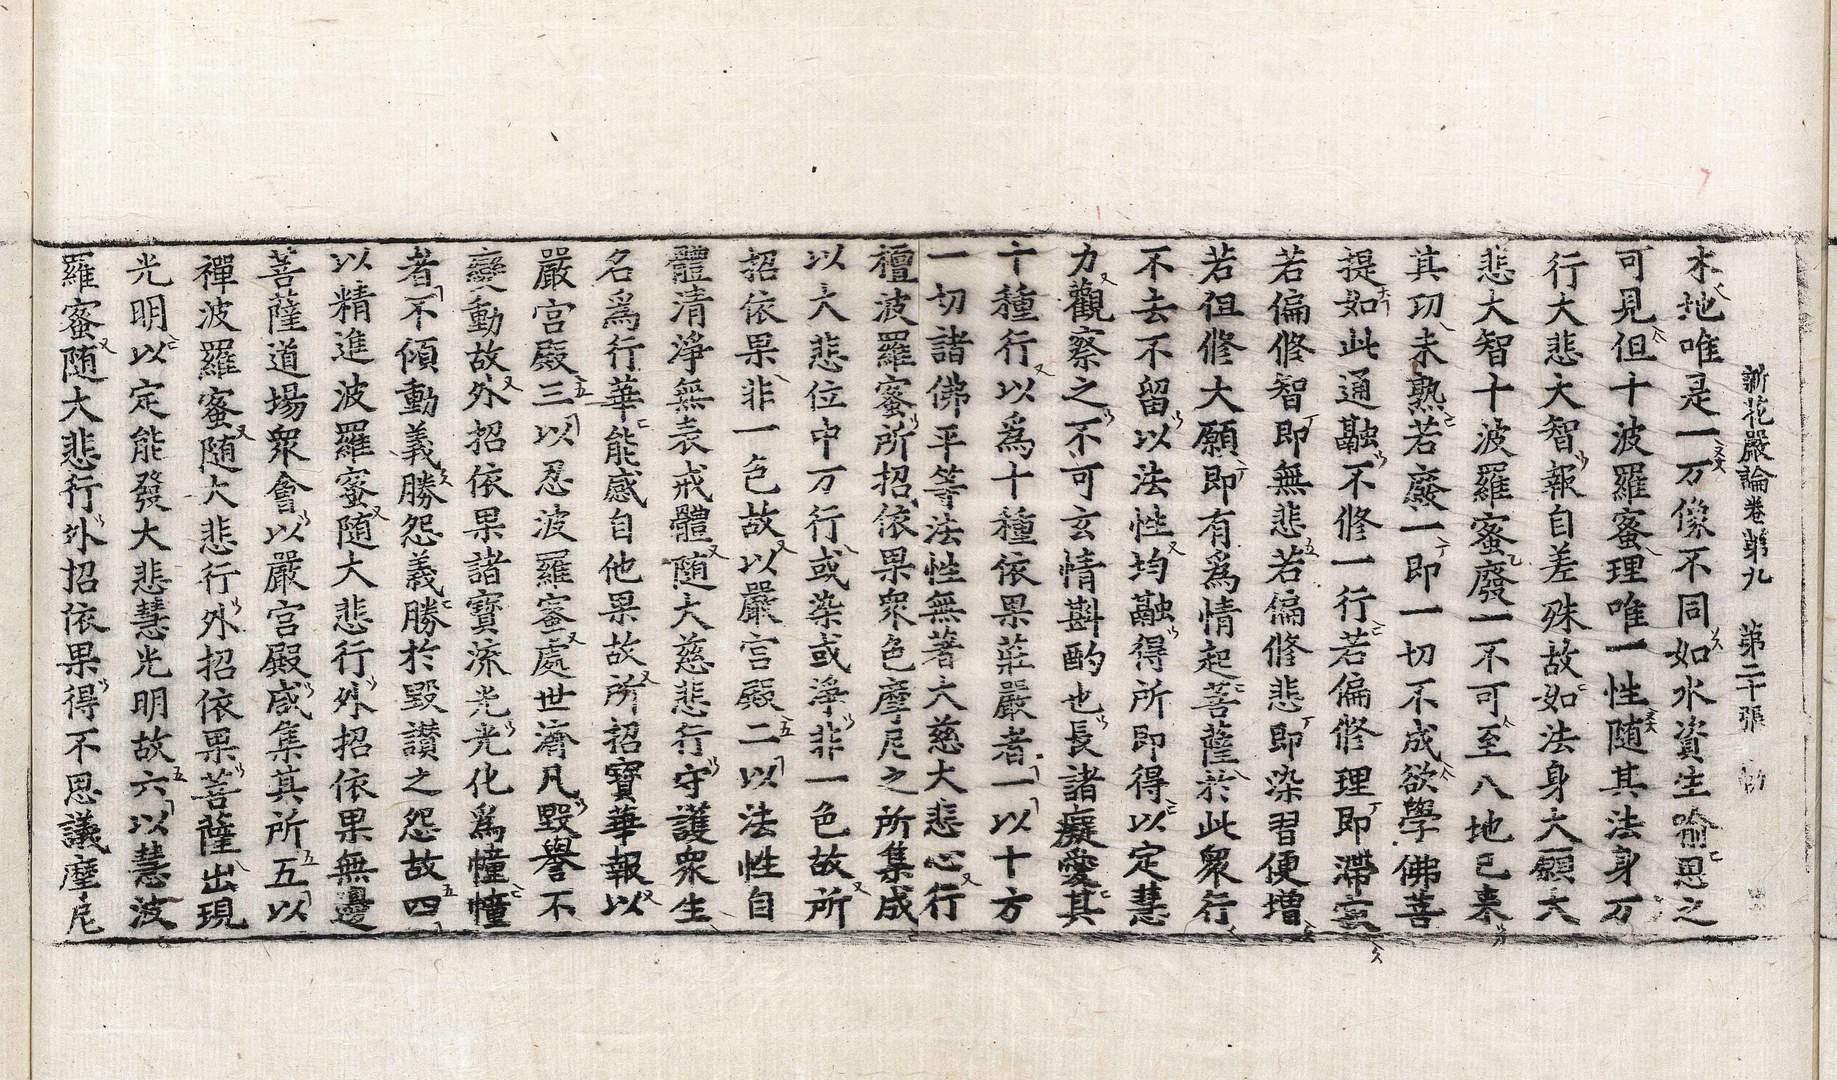 新花嚴論卷第九　第二十張
木地唯是一万像不同如水資生喻思之
可見但十波羅蜜理唯一性随其法身万
行大悲大智報自差殊故如法身大願大
悲大智十波羅蜜廢一不可至八地已來
其功未熟若廢一即一切不成欲學佛菩
提如此通融不修一行若偏修理即滯寂
若偏修智即無悲若偏修悲即染習便增
若但修大願即有爲情起菩薩於此衆行
不去不留以法性均融得所即得以定慧
力觀察之不可玄情斟酌也長諸癡愛其
十種行以爲十種依果莊嚴者一以十方
一切諸佛平等法性無著大慈大悲心行
檀波羅蜜所招依果衆色摩尼之所集成
以大悲位中万行或染或淨非一色故所
招依果非一色故以嚴宫殿二以法性自
體清淨無表戒體随大慈悲行守護衆生
名爲行華能感自他果故所招寶華報以
嚴宫殿三以忍波羅蜜處世濟凡毀譽不
變動故外招依果諸寶流光光化爲幢幢
者不傾動義勝怨義勝於毀讃之怨故四
以精進波羅蜜随大悲行外招依果無邊
菩薩道場衆會以嚴宫殿咸集其所五以
禪波羅蜜随大悲行外招依果菩薩出現
光明以定能發大悲慧光明故六以慧波
羅蜜随大悲行外招依果得不思議摩尼